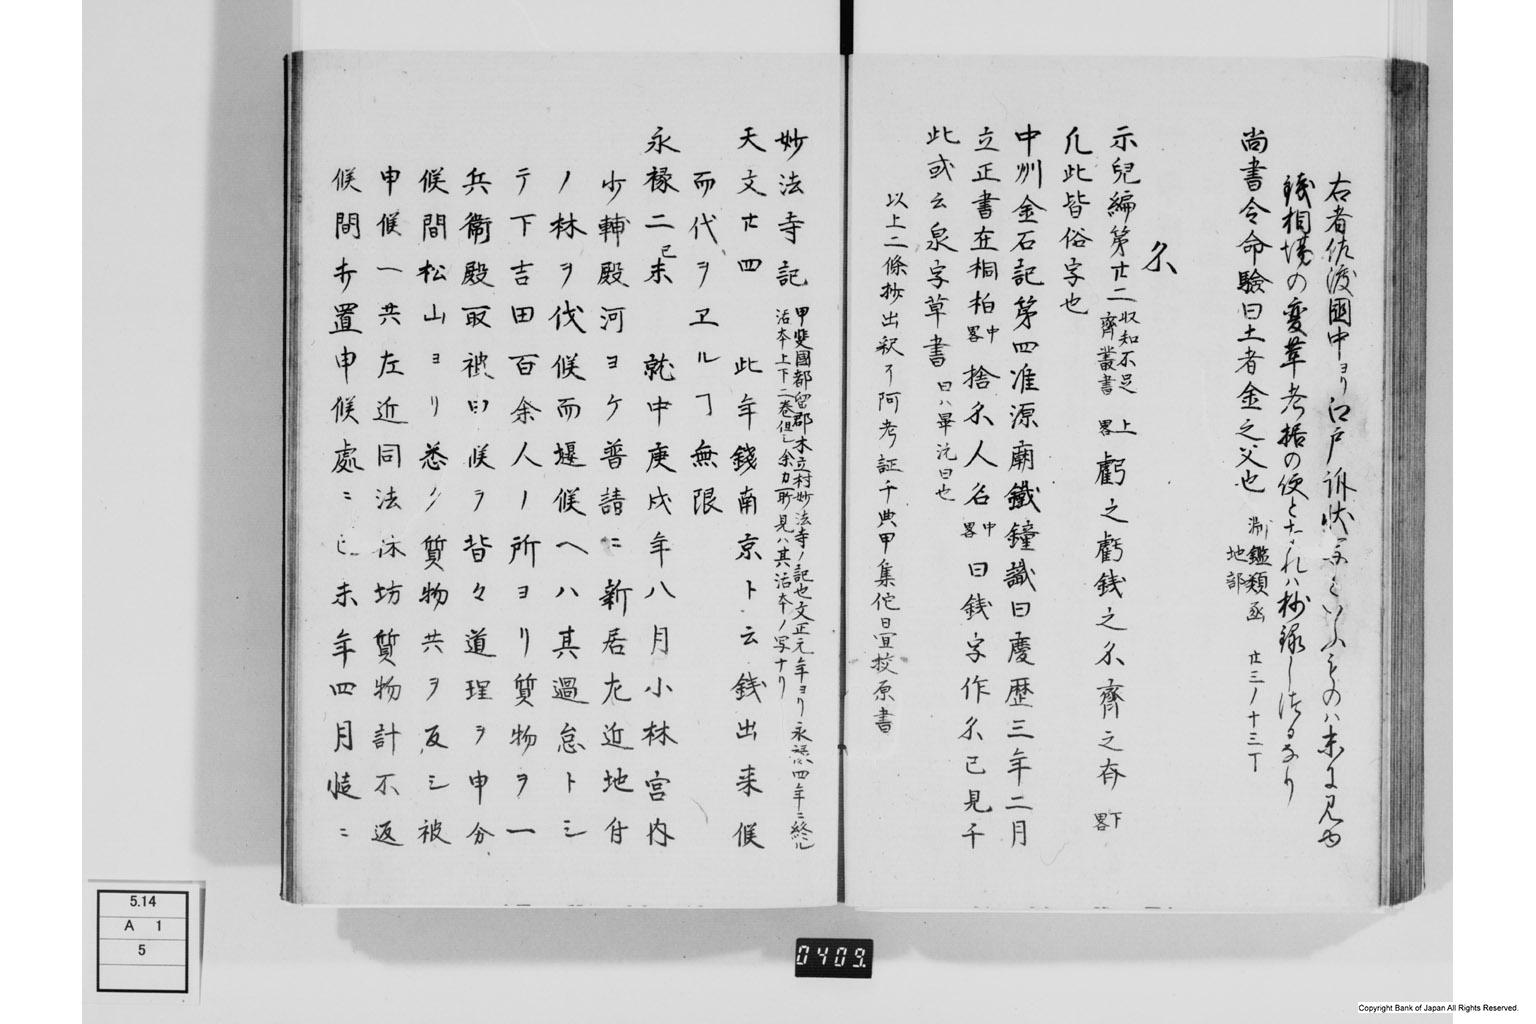 右者佐渡國中ヨリ江戸訴状
銭相場の変革考拠の便となれハ抄録しぬるなり
尚書令命驗曰土者金之父也 淵鑑類函地部 廿三ノ十三丁
尓
示兒編第廿二 収知不足齊叢書 上畧 虧之虧銭之尓齊之斉 下畧
凡此皆俗字也
中州金石記第四淮源廟鐵鐘識曰慶歴三年二月
立正書在桐柏 中畧 捨尓人名 中畧 曰銭字作尓已見千
此或云泉字草書 曰ハ畢沅曰也
以上二條抄出釈了阿考証千典甲集佗日宜挍原書
妙法寺記 甲斐國都留郡木立村妙法寺ノ記也文正元年ヨリ永禄四年ニ終ル
活本上下二巻但シ余カ所見ハ其活本ノ写ナリ
天文廿四 此年錢南京ト云銭出来候
而代ヲヱルヿ無限
永禄二己未 就中庚戌年八月小林宮内
少輔殿河ヨケ普請ニ新居左近地付
ノ林ヲ伐候而堰候ヘハ其過怠トシ
テ下吉田百余人ノ所ヨリ質物ヲ一
兵衞殿取被申候ヲ皆々道理ヲ申分
候間松山ヨリ悉ク質物共ヲ反シ被
申候一共左近同法泳坊質物計不返
候間赤置申候處ニ己未年四月慥ニ
5.14
A 1
5
0409.
Copyright Bank of Japan All Rights Reserved.